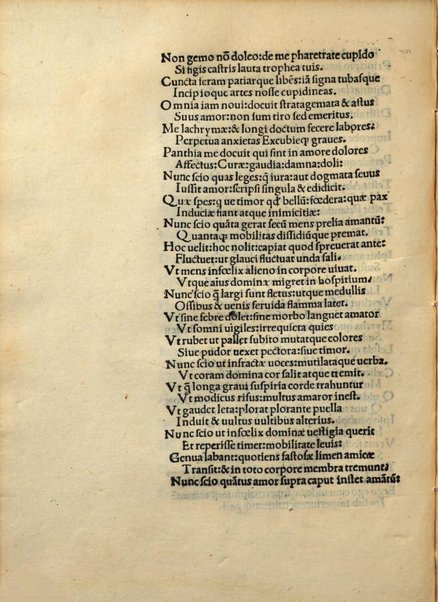 Non gemo nō doleo:de me pharetrate cupido
Si figis castris lauta trophea tuis.
Cuncta feram patiarque libēs:iā signa tubasque
Incipioque artes nosse cupidineas.
Omnia iam noui:docuit stratagemata & astus
Suus amor:non sum tiro sed emeritus.
Me lachrymæ:& longi doctum fecere labores:
Perpetua anxietas Excubieqꝫ graues.
Panthia me docuit qui sint in amore dolores
Affectus:Curæ:gaudia:damna:doli:
Nunc scio quas leges:q̄ iura:aut dogmata sæuus
Iussit amor:scripsi singula & edidicit.
Quæ spes:q̄ ue timor qđ bellū:fœdera:quæ pax
Induciæ fiant atque inimicitiæ:
Nunc scio quāta gerat secū mens prelia amantū:
Quantaqꝫ mobilitas dissidiūque premat.
Hoc uelit:hoc nolit:capiat quod spreuerat ante:
Fluctuet:ut glauci fluctuat unda sali.
Vt mens infœlix alieno in corpore uiuat.
Vtque aius dominæ migret in hospitium
Nunc scio q̄ largi sunt fletus:utque medullis
Ossibus & uenis feruida flamma latet.
Vt sine febre dolet:sine morbo languet amator
Vt somni uigiles:irrequieta quies
Vt rubet ut pallet subito mutatque colores
Siue pudor uexet pectora:siue timor.
Nunc scio ut infractæ uoces:mutilataque uerba.
Vt coram domina cor salit atque tremit.
Vt q̄ longa graui suspiria corde trahuntur
Vt modicus risus:multus amaror inest.
Vt gaudet leta:plorat plorante puella
Induit & uultus uultibus alterius.
Nunc scio ut infœlix dominæ uestigia querit
Et reperisse timet:mobilitate leuis:
Genua labant:quotiens fastosæ limen amicæ
Transit:& in toto corpore membra tremunt:
Nunc scio quātus amor supra caput instet amātū: